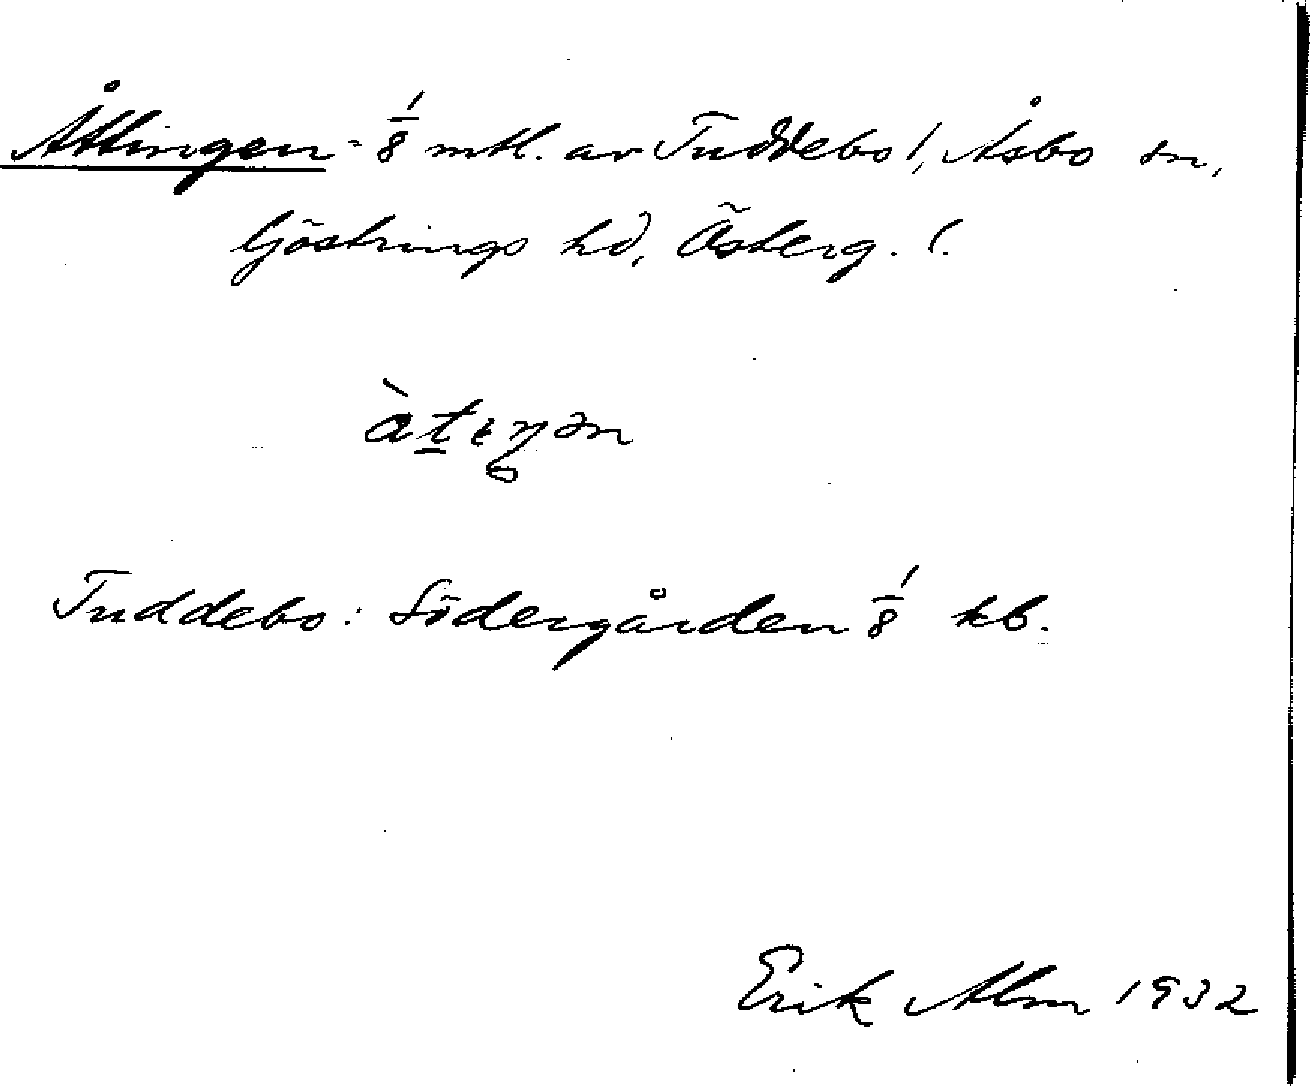 Åttingen = 1/8 mtl. av Tuddebo!, Åsbo sn,
Göstrings hd, Österg. l.
Tuddebo: Södergården 1/8 kb.
Erik Alm 1932